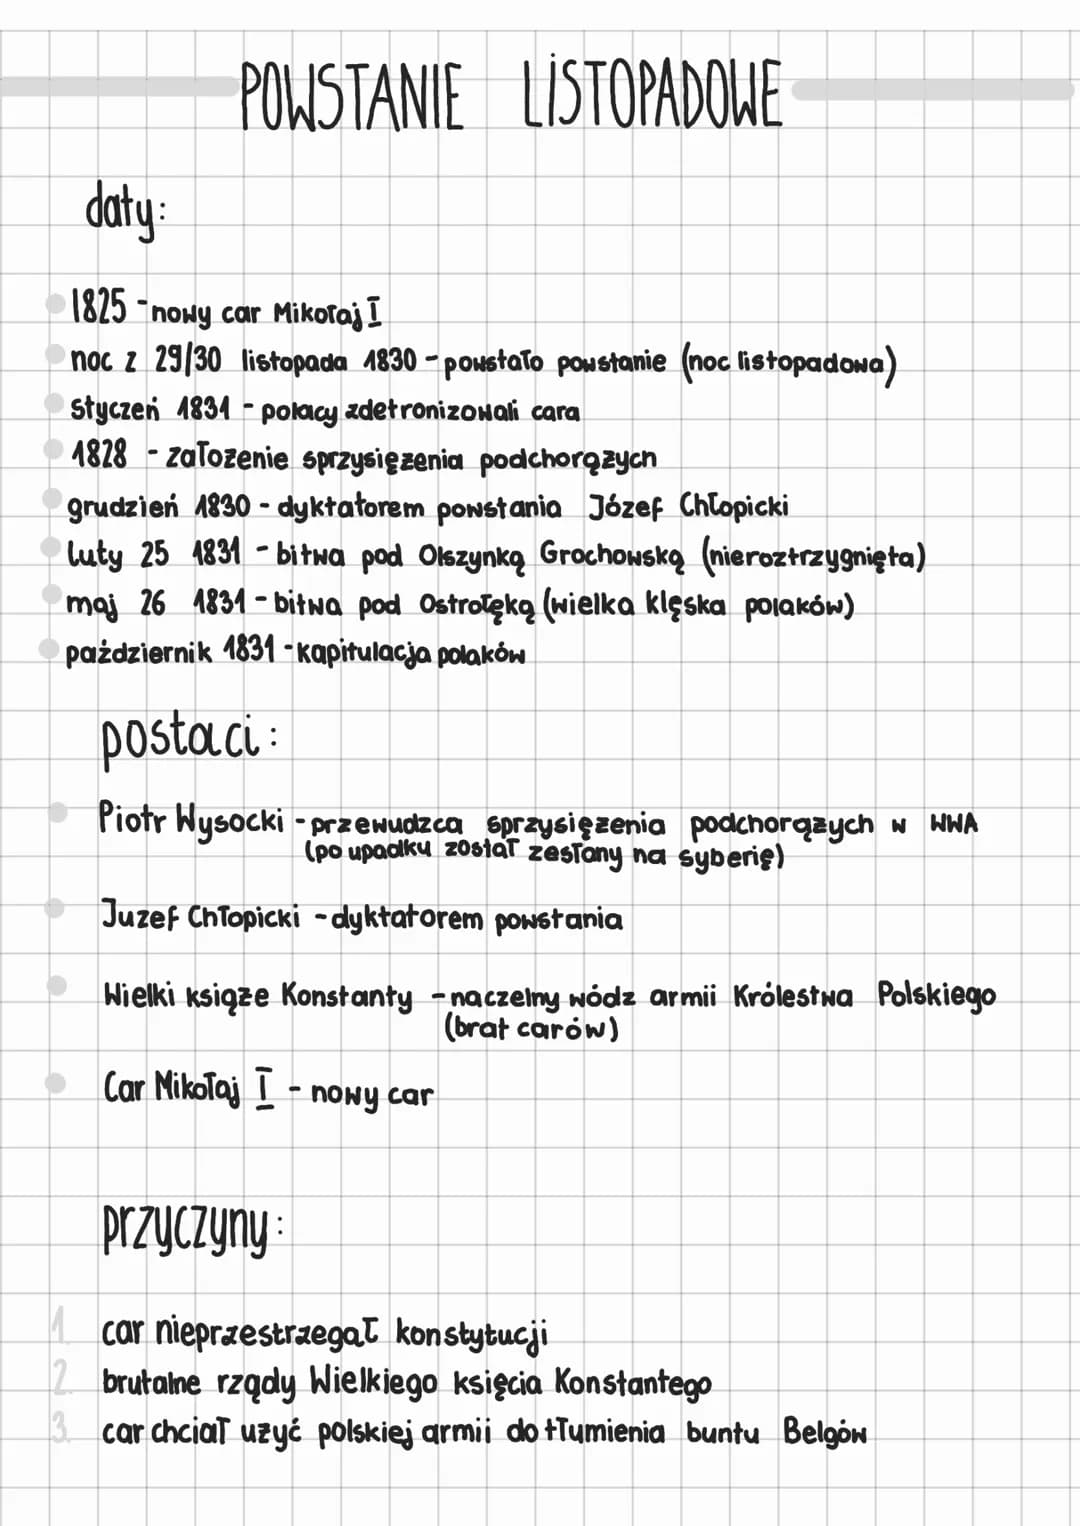 POWSTANIE LISTOPADOWE
daty:
1825 - nowy car Mikołaj I
noc z 29/30 listopada 1830 - powstało powstanie (noc listopadowa)
styczeń 1831 - polacy zdetronizowali cara
1828 - założenie sprzysiężenia podchorążych
grudzień 1830 - dyktatorem powstania Józef Chłopicki
luty 25 1831 - bitwa pod Olszynką Grochowską (nieroztrzygnięta)
maj 26 1831 - bitwa pod Ostrołęką (wielka klęska polaków)
październik 1831 - kapitulacja polaków
postaci:
Piotr Wysocki - przewudzca sprzysiężenia podchorążych w WWA
(po upadku został zesłany na syberię)
Juzef Chłopicki - dyktatorem powstania
Wielki książe Konstanty - naczelny wódz armii Królestwa Polskiego
(brat carów)
Car Mikołaj I - nowy car
przyczyny:
1. car nieprzestrzegał konstytucji
2. brutalne rządy Wielkiego księcia Konstantego
3. car chciał użyć polskiej armii do tłumienia buntu Belgów